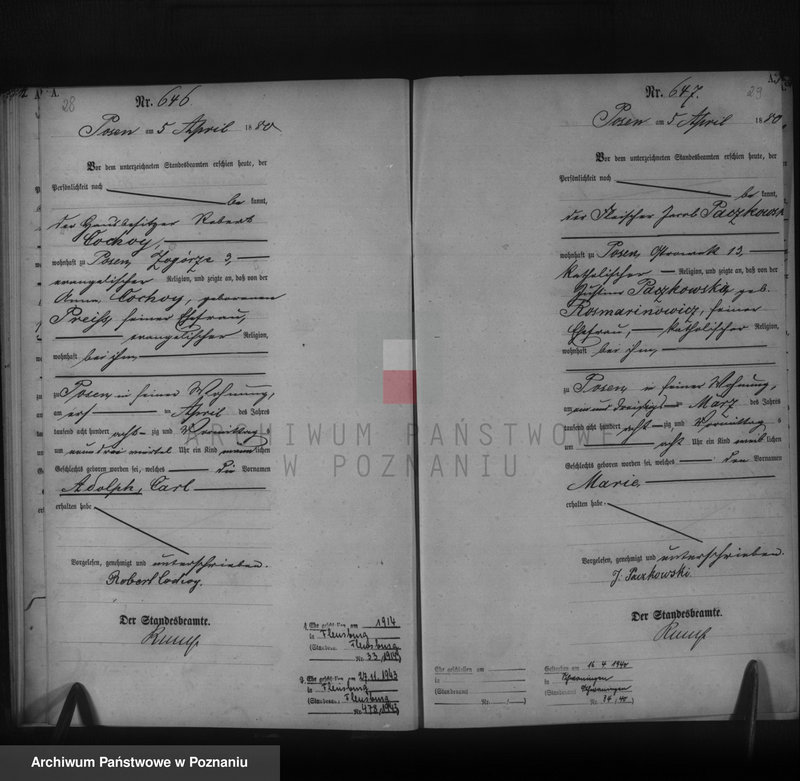 28
A.
Nr. 646
Posen am 5 April 1880
Vor dem unterzeichneten Standesbeamten erschien heute, der
Persönlichkeit nach
be kannt,
der Hausbesitzer Robert
Cochoy,
wohnhaft zu Posen, Zagórze 3,
evangelischer Religion, und zeigte an, daß von der
Anna Cochoy, geborenen
Preiß, seiner Ehefrau,
evangelischer Religion,
wohnhaft bei ihm
zu Posen in seiner Wohnung,
am ersten April des Jahres
tausend acht hundert acht zig und Vormittags
um drei viertel Uhr ein Kind männlichen
Geschlechts geboren worden sei, welches die Vornamen
Adolph, Carl
erhalten habe
Vorgelesen, genehmigt und unterschrieben.
Robert Cochoy.
Der Standesbeamte.
1. Ehe geschlossen am 1914
in Flensburg
(Standesa. Flensburg
Nr. 33/1914)
2. Ehe geschlossen am 27.11.1943
in Flensburg
(Standesa. Flensburg
Nr. 478/1943)
A.
29
Nr. 647.
Posen am 5 April 1880
Vor dem unterzeichneten Standesbeamten erschien heute, der
Persönlichkeit nach
be kannt,
der Fleischer Jacob Paczkowski
wohnhaft zu Posen, Ostrowek 13,
katholischer Religion, und zeigte an, daß von der
Justine Paczkowska geb.
Rosmarinowicz, seiner
Ehefrau, katholischer Religion,
wohnhaft bei ihm
zu Posen in seiner Wohnung,
am ein und dreißigsten März des Jahres
tausend acht hundert acht zig und Vormittags
um acht Uhr ein Kind weiblichen
Geschlechts geboren worden sei, welches den Vornamen
Marie
erhalten habe
Vorgelesen, genehmigt und unterschrieben.
J. Paczkowski.
Der Standesbeamte.
Ehe geschlossen am
in
(Standesamt
Nr. /)
Gestorben am 16.4.1944
in Schwaningen
(Standesamt Schwaningen
Nr. 34/44)
ARCHIWUM PAŃSTWOWE
W POZNANIU
Archiwum Państwowe w Poznaniu